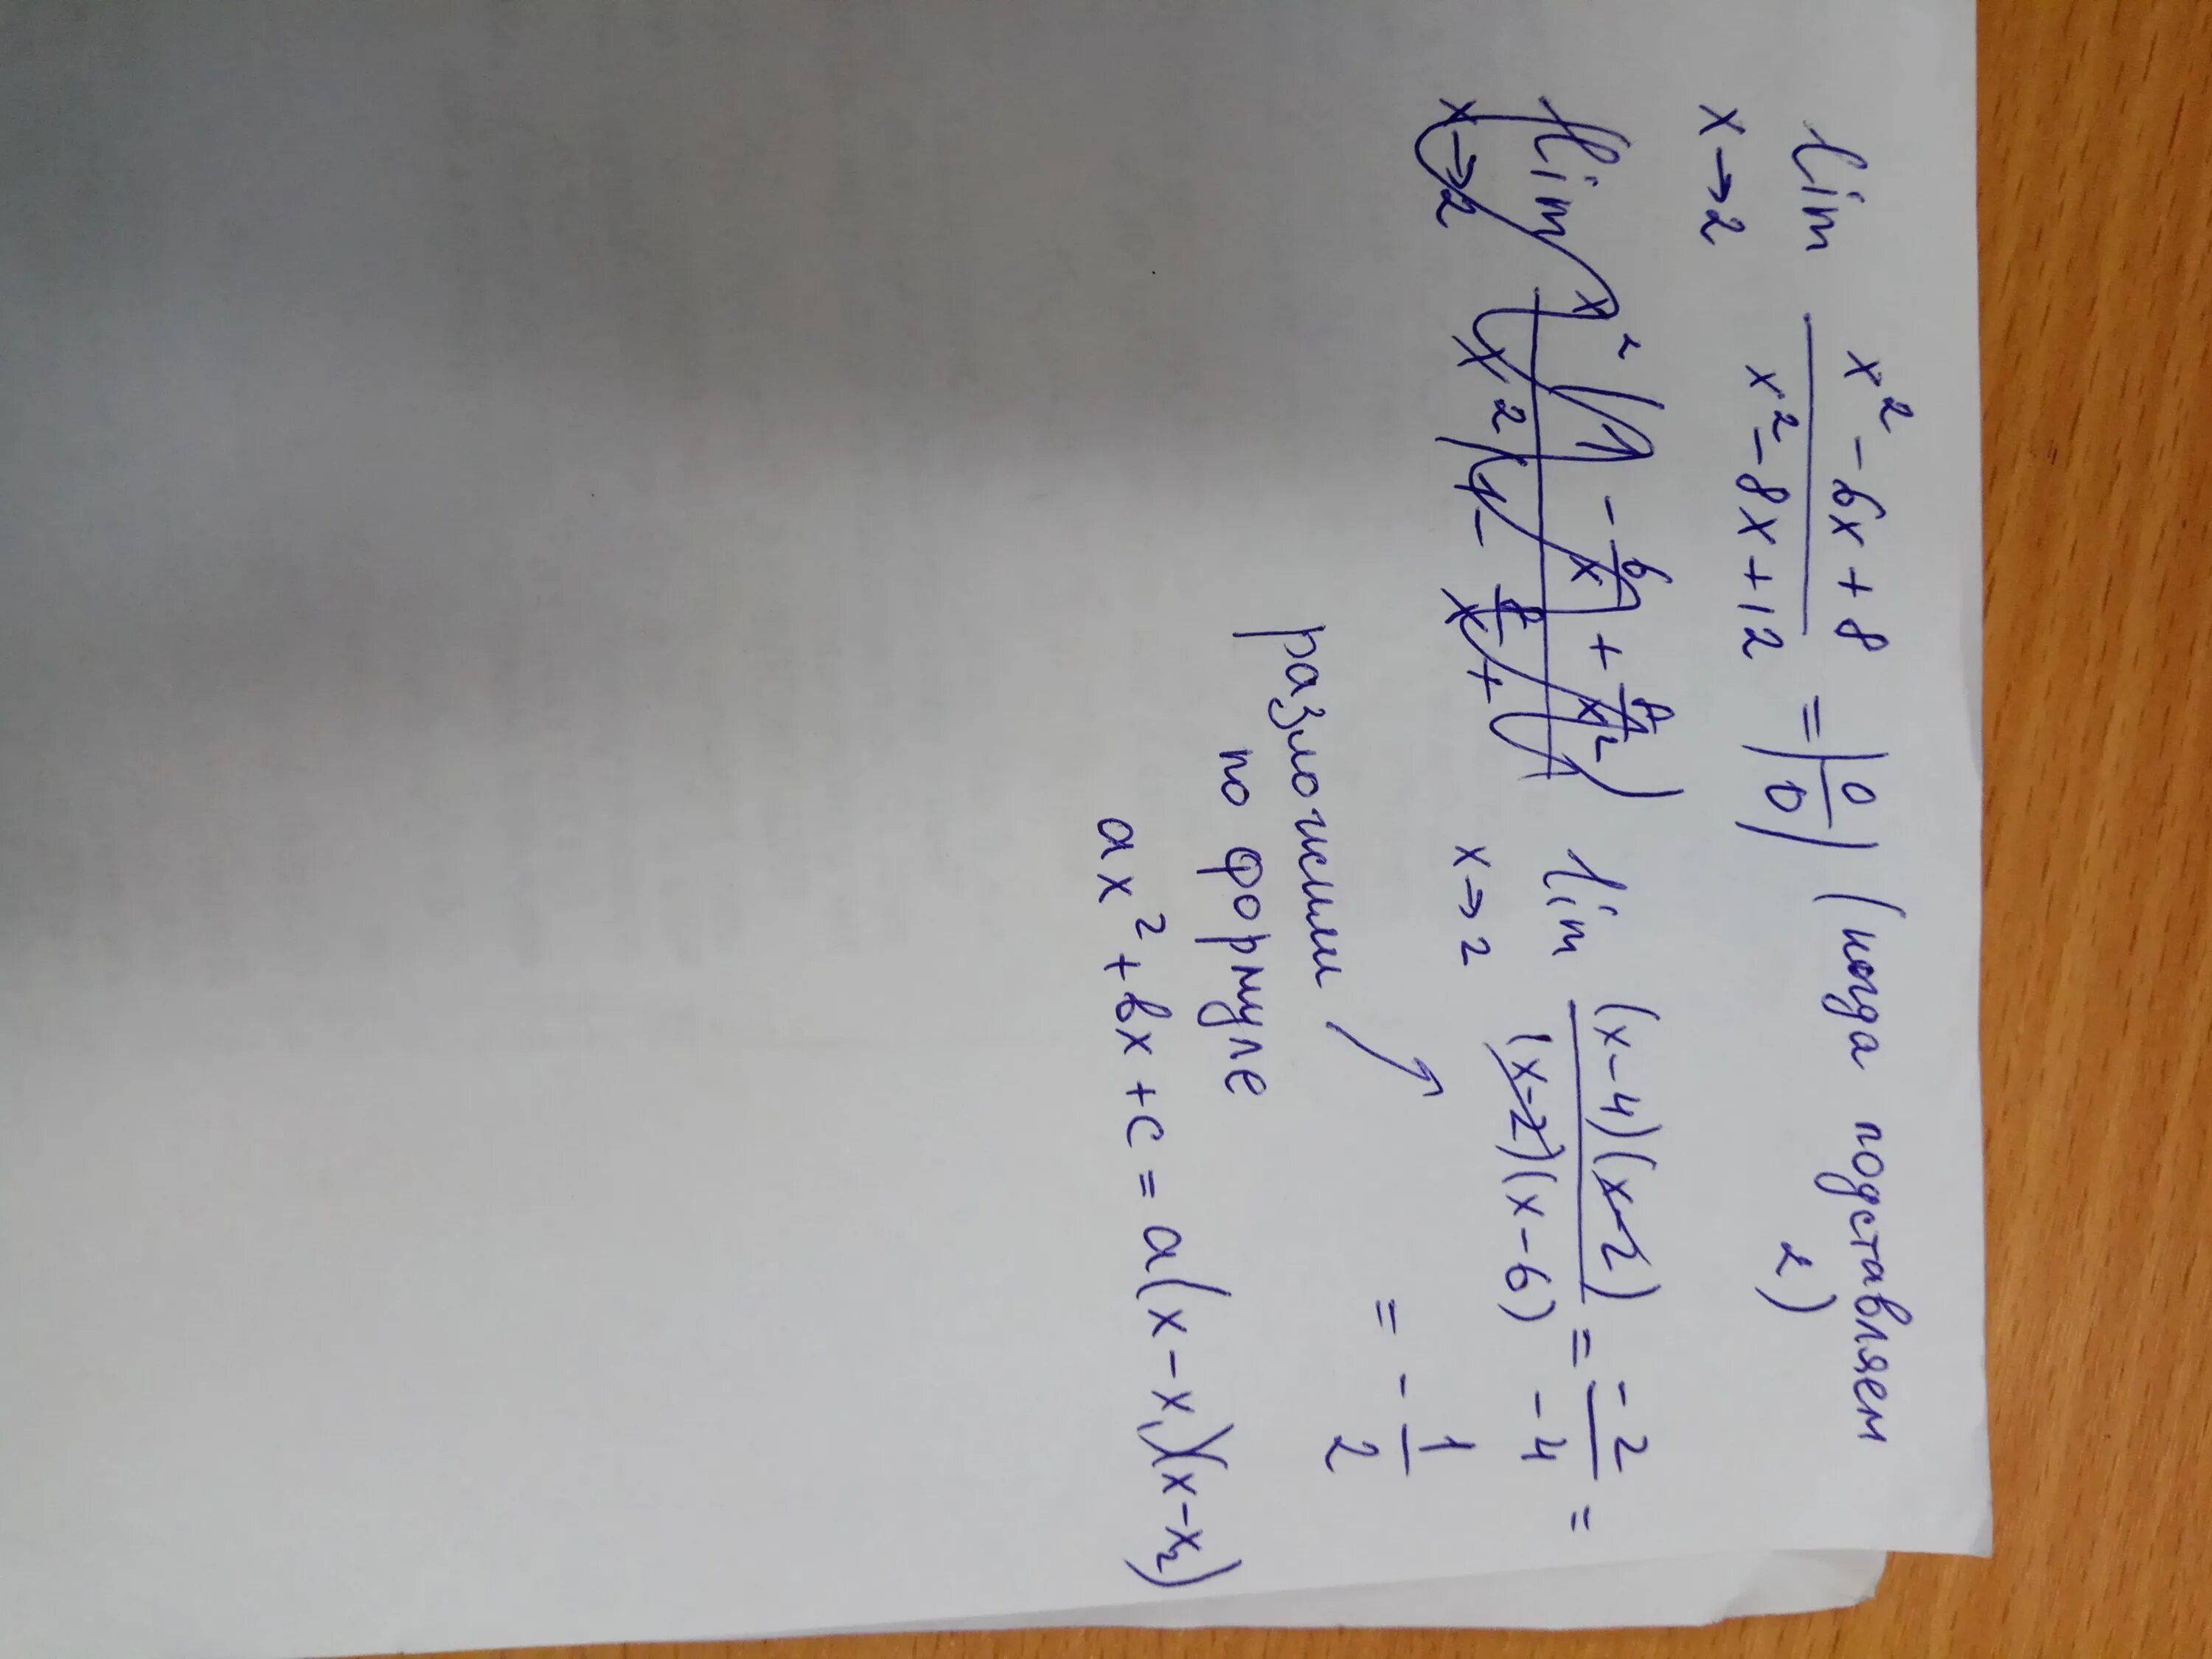 lim x→2 (x² - 6x + 8)/(x² - 8x + 12) = |0/0| (когда подставляем 2)
lim x→2 x²(1 - 6/x + 8/x²)/x²(1 - 8/x +
lim x→2 (x-4)(x-2)/(x-2)(x-6) = -2/-4 =
= -1/2
разложили
по формуле
ax² + bx + c = a(x - x₁)(x - x₂)